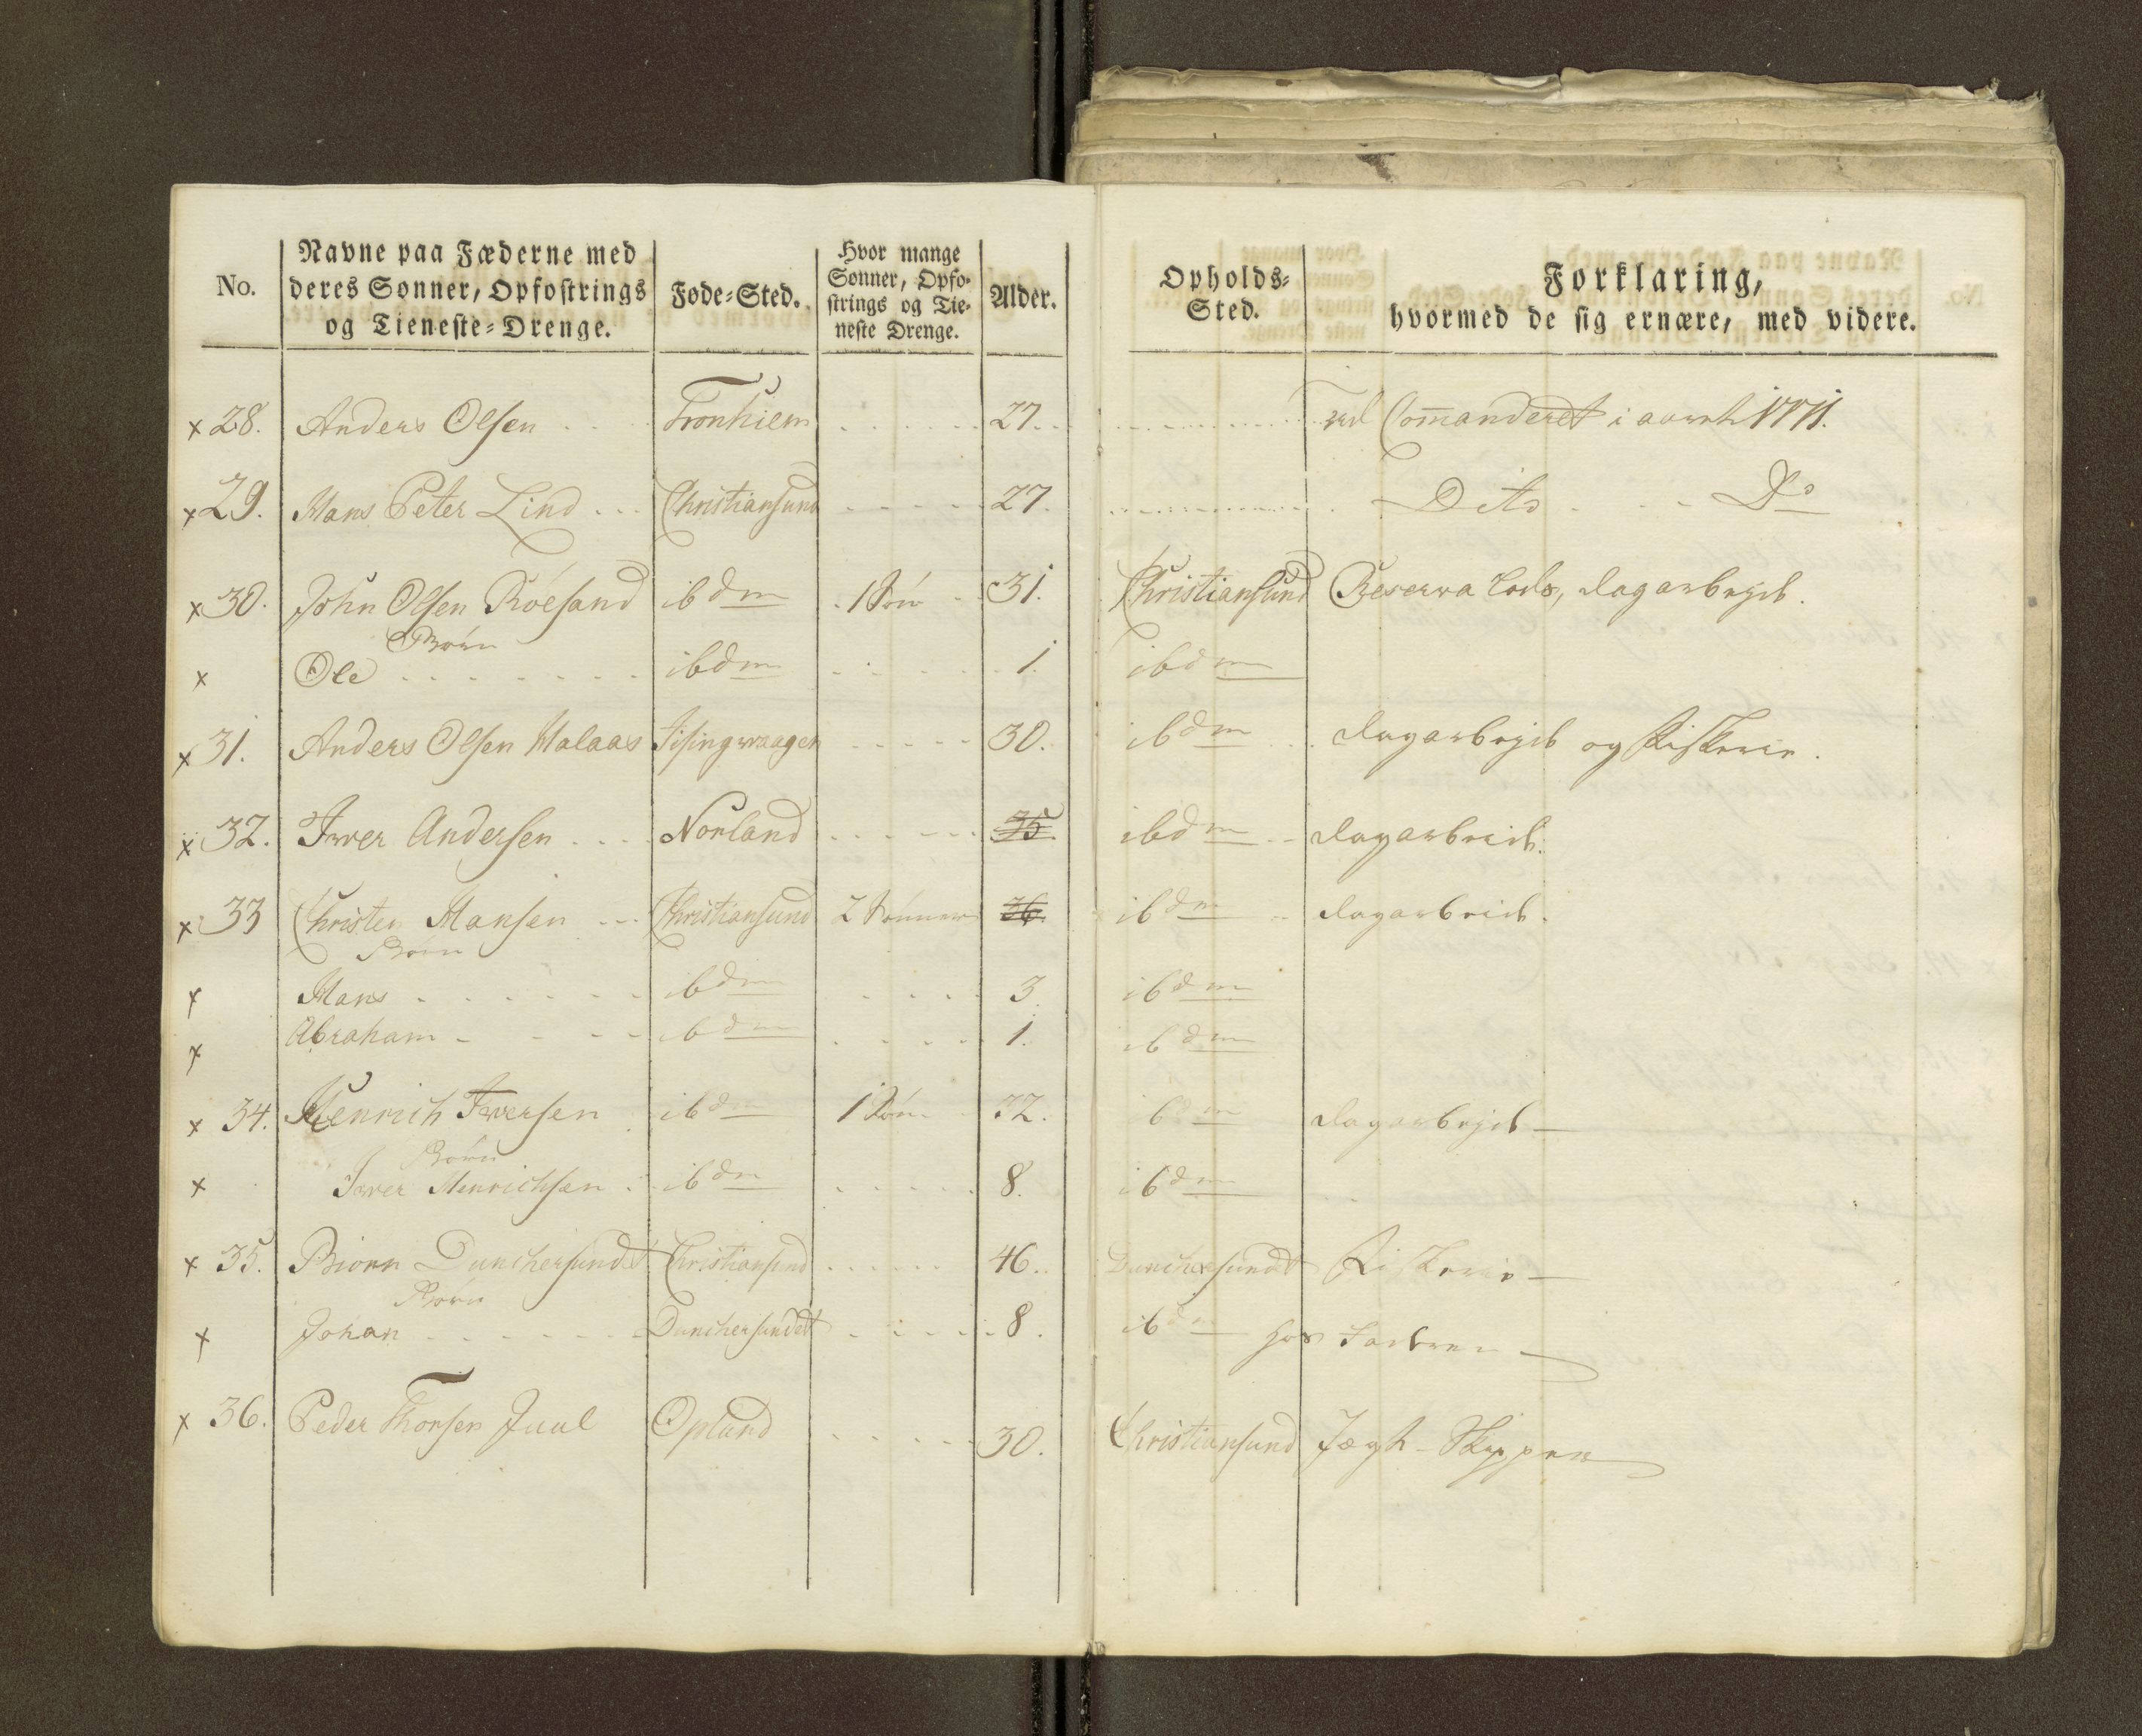 No. Navne paa Fæderne med deres Sønner, Opfostrings og Tieneste-Drenge. Føde-Sted. Hvor mange Sønner, Opfostrings og Tieneste Drenge. Alder. Opholds-Sted. Forklaring, hvormed de sig ernære, med videre.
x 28. Anders Olsen Tronhiem 27. Ud Com̄anderet i aaret 1771.
x 29. Hans Peter Lind Christiansund 27. Dito Do
x 30. John Olsen Roesand ibdm 1 Søn 31. Christiansund Reserva Lods, dagarbejd.
Børn
x Ole ibdm 1. ibdm
x 31. Anders Olsen Halaas Tisingwaagen 30. ibdm dagarbejd og Fiskerie.
x 32. Iwer Andersen Norland 35. ibdm dagarbeid.
x 33 Christen Hansen Christiansund 2 Sønner 36. ibdm dagarbeid.
Børn
x Hans ibdm 3. ibdm
x Abraham ibdm 1. ibdm
x 34. Henrich Iwersen ibdm 1 Søn 32. ibdm dagarbejd
Børn
x Iwer Henrichsen ibdm 8. ibdm
x 35. Biörn Dunchersundet Christiansund 46. Dunchersundet Fiskerie
Børn
x Johan Dunchersundet 8. ibdm hos Faderen
x 36. Peder Thorsen Juul Opland 30. Christiansund Jægt-Skipper